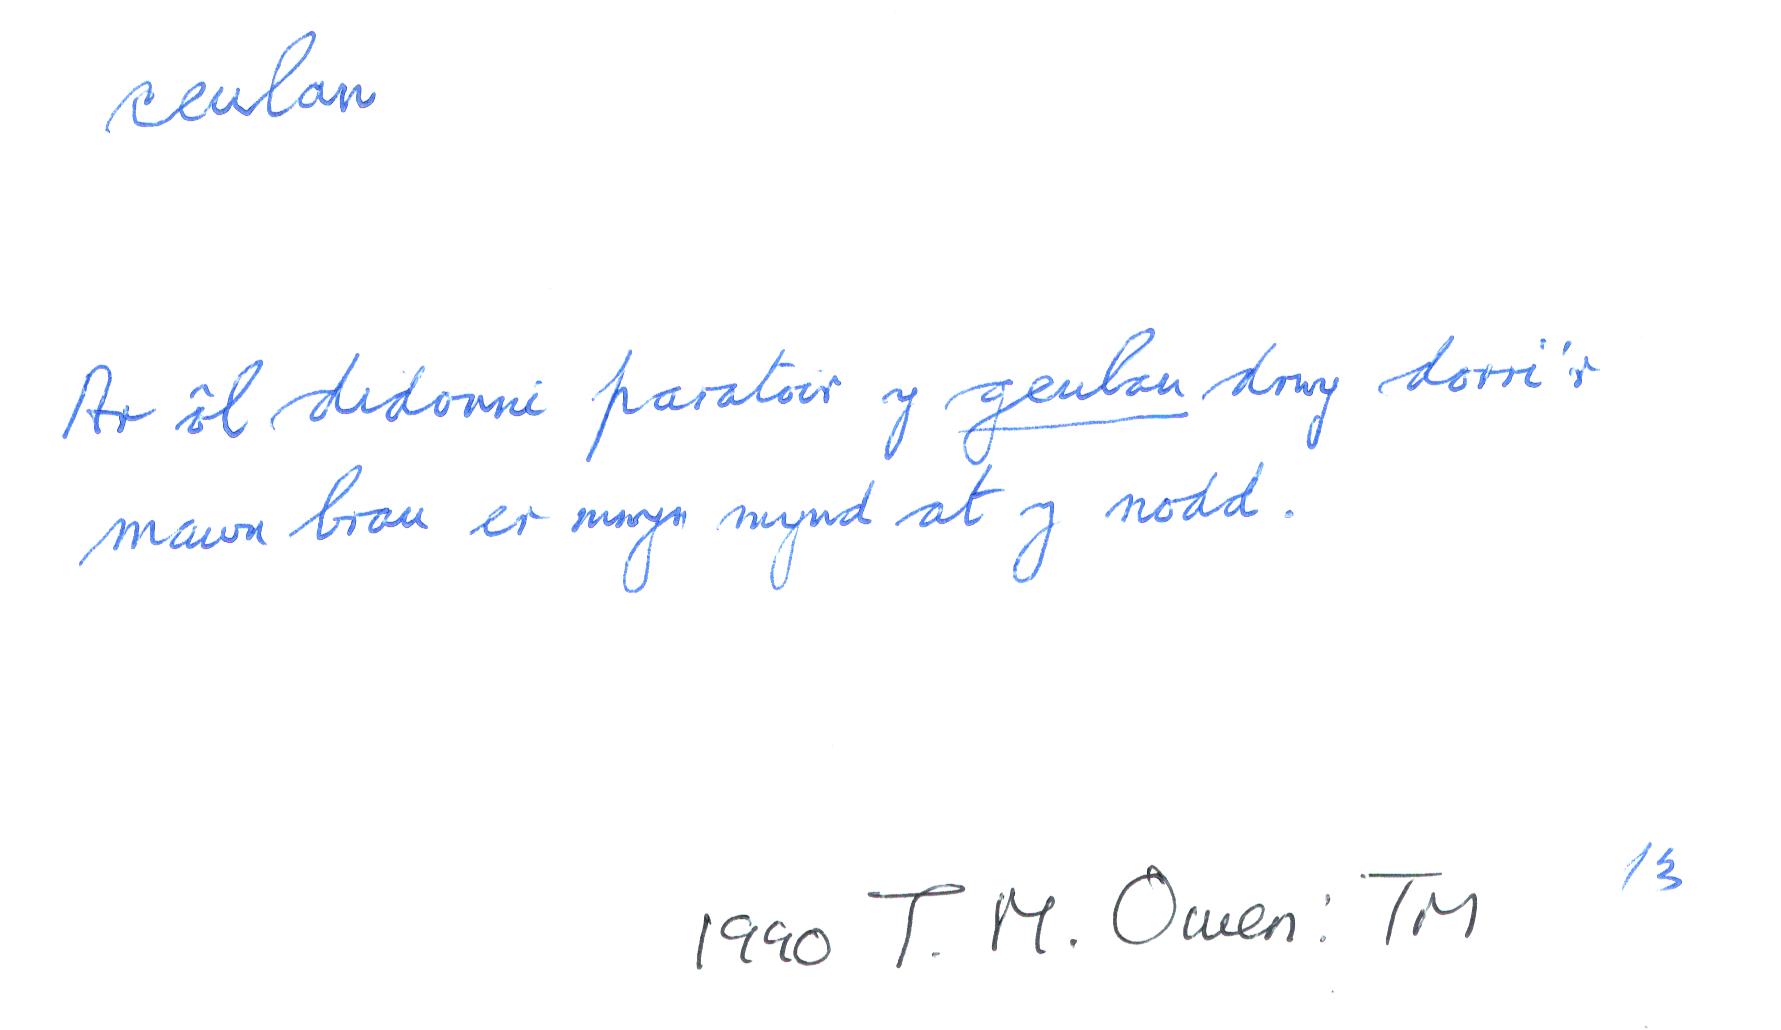 ceulan
Ar ôl didonni paratoir y geulan drwy dorri'r
mawn brau er mwyn mynd at y nodd.
13
1990 T. M. Owen: TM